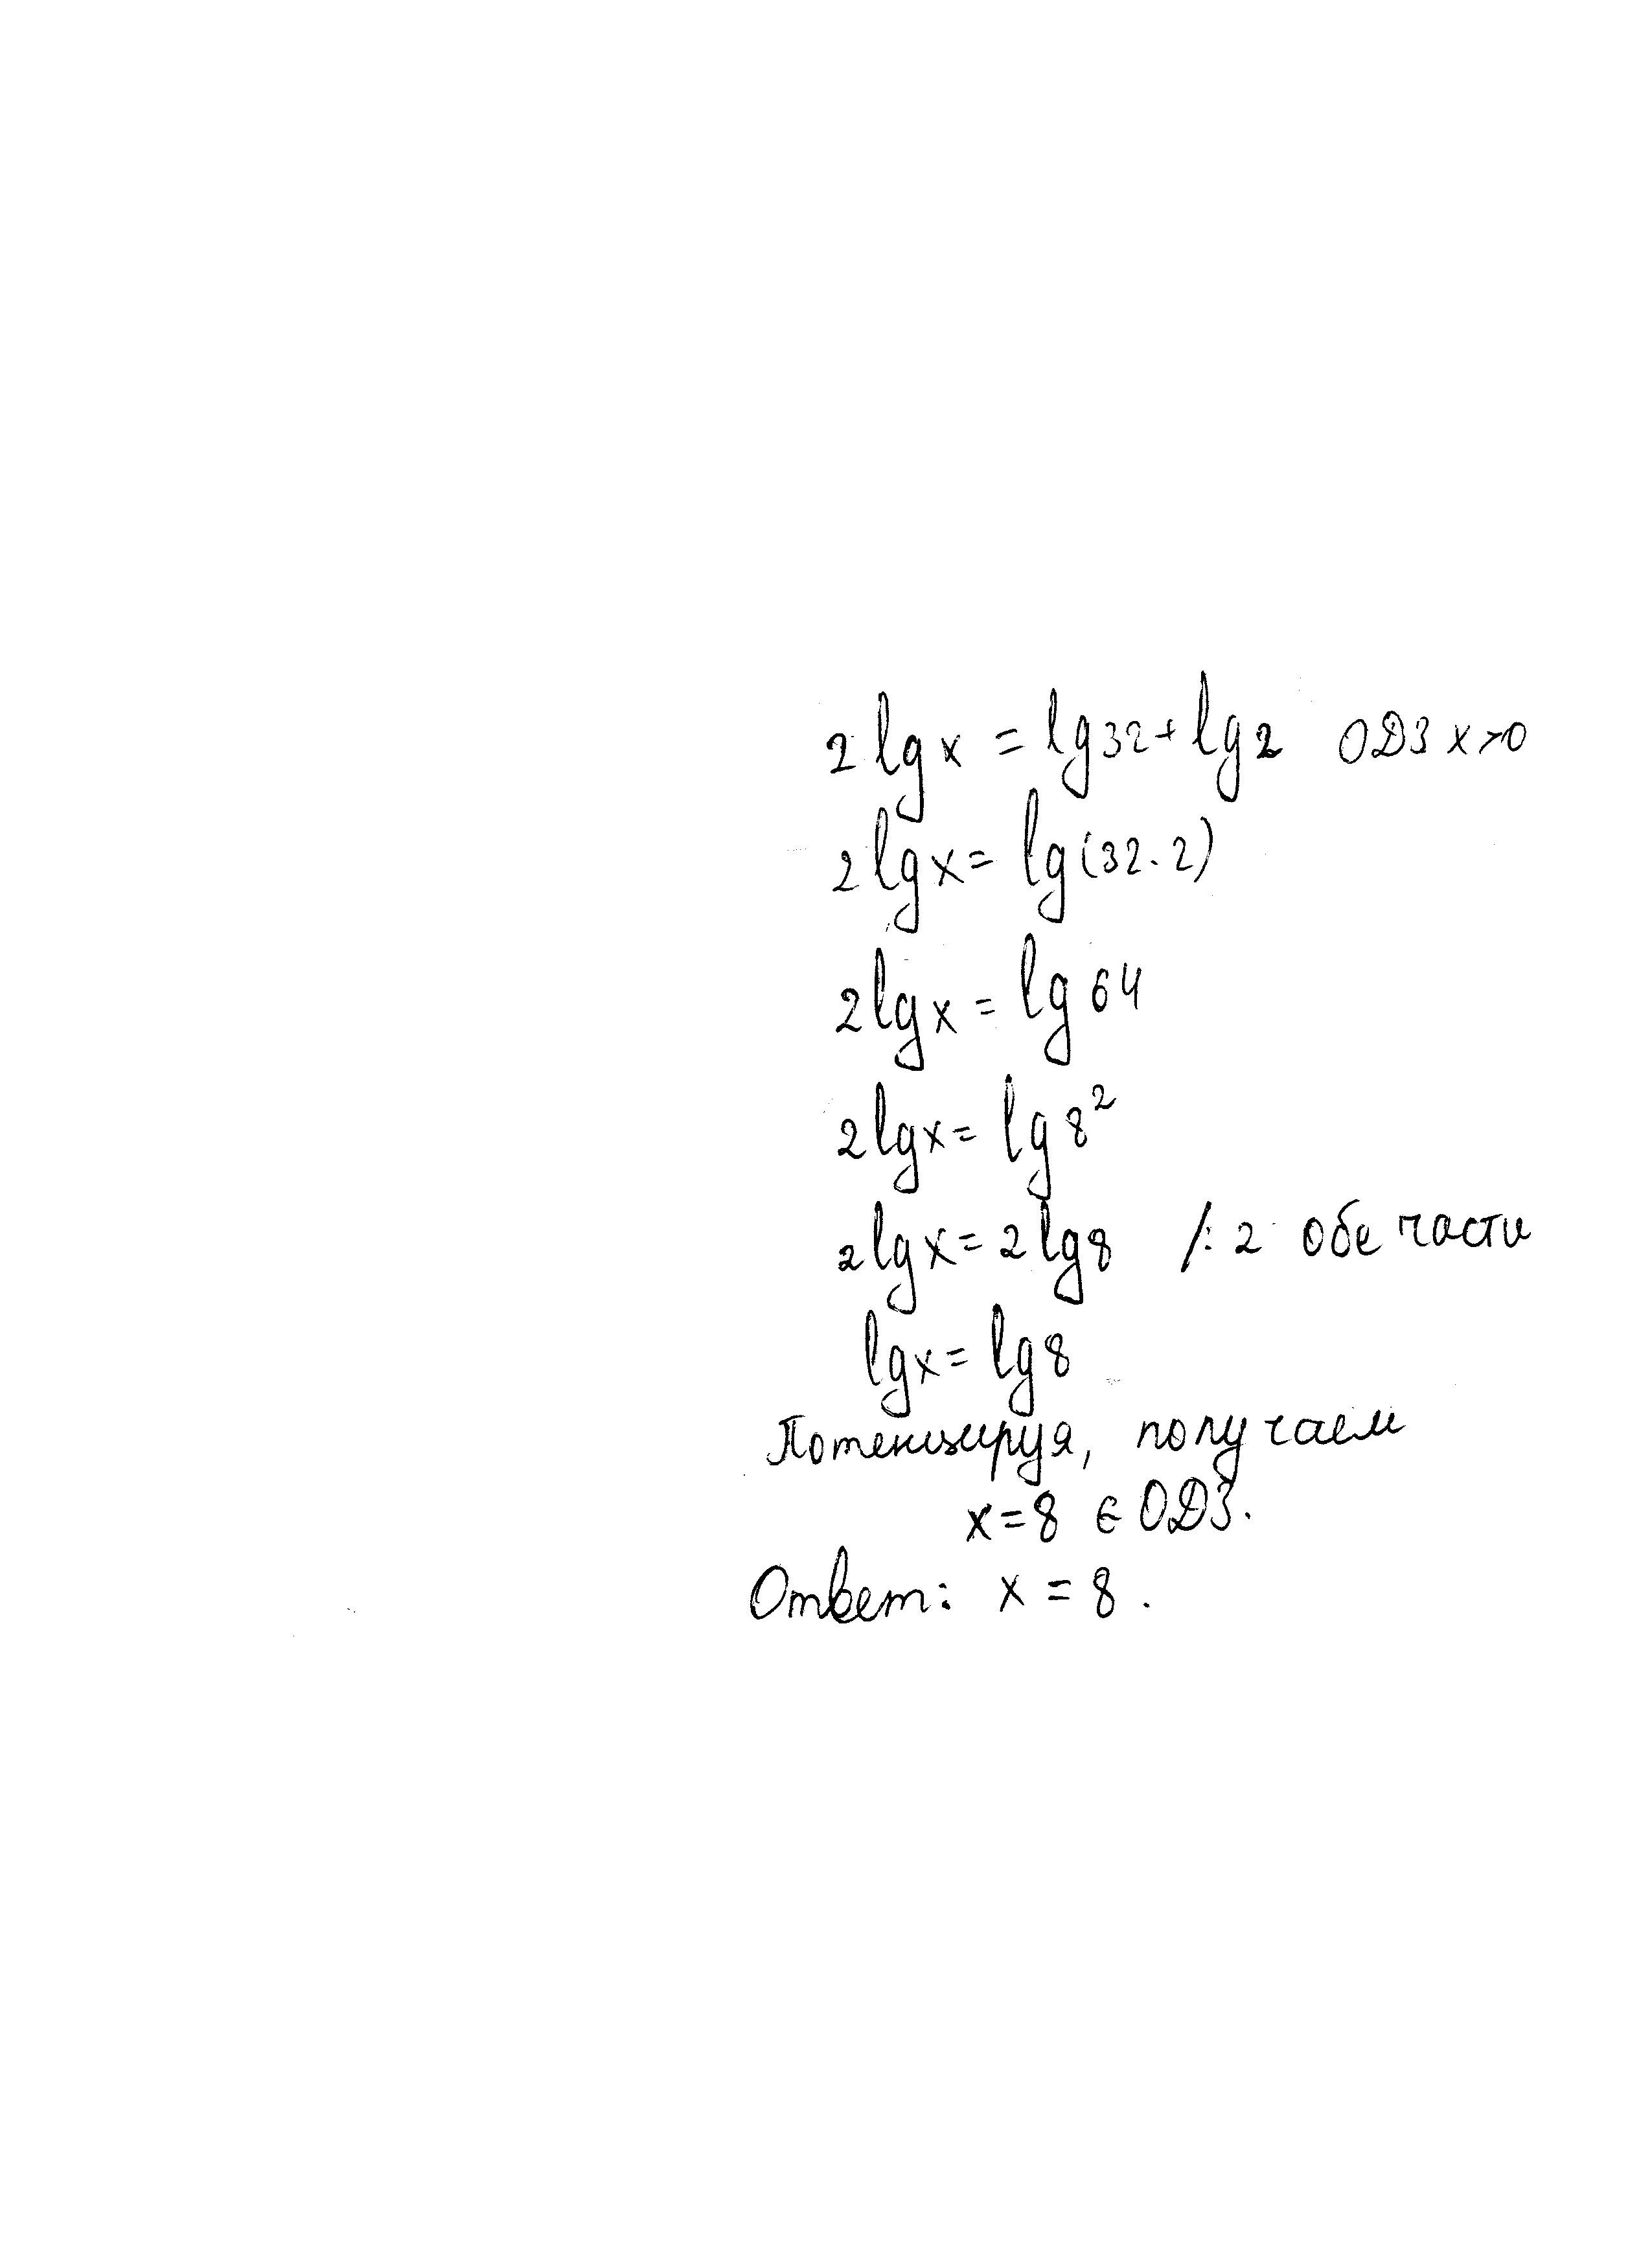 2 lg x = lg 32 + lg 2 ОДЗ x > 0
2 lg x = lg (32 · 2)
2 lg x = lg 64
2 lg x = lg 8²
2 lg x = 2 lg 8 /: 2 обе части
lg x = lg 8
Потенцируя, получаем
x = 8 ∈ ОДЗ.
Ответ: x = 8.